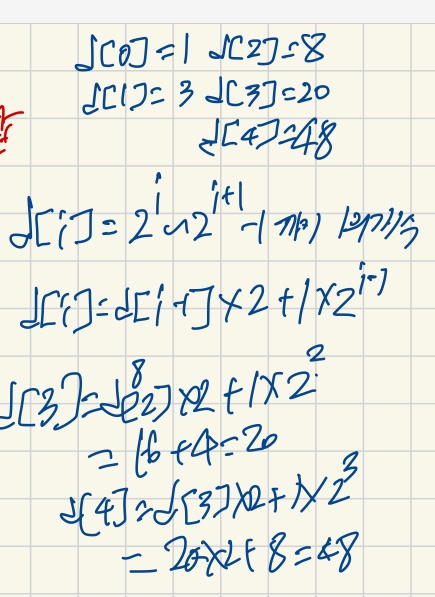 d[0]=1 d[2]=8
d[1]=3 d[3]=20
d[4]=48
d[i]=2^i~2^{i+1}-1까지
d[i]=d[i-1]×2+1×2^{i-1}
d[3]=d[2]×2+1×2^2
8
=16+4=20
d[4]=d[3]×2+1×2^3
=20×2+8=48